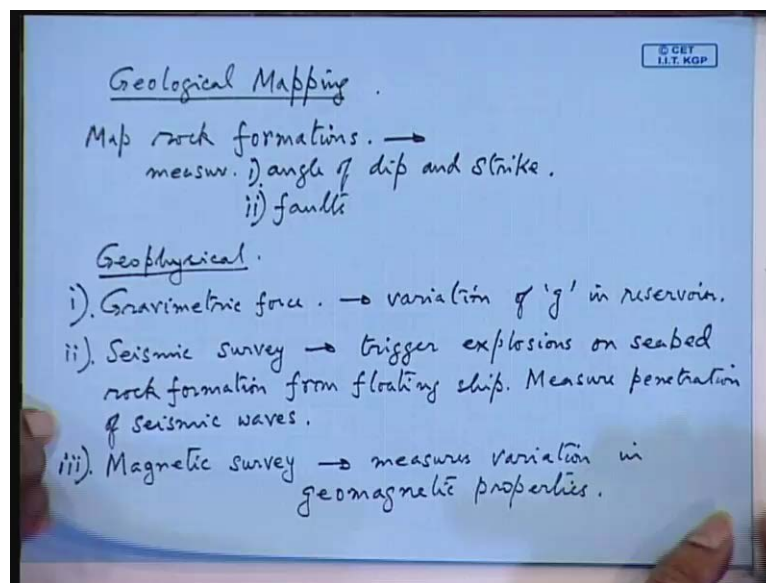 © CET
I.I.T. KGP
Geological Mapping .
Map rock formations. →
measur. i). angle of dip and strike.
ii) faults
Geophysical.
i). Gravimetric force. → variation of 'g' in reservoir.
ii). Seismic survey → trigger explosions on seabed
rock formation from floating ship. Measure penetration
of seismic waves.
iii). Magnetic survey → measures variation in
geomagnetic properties.